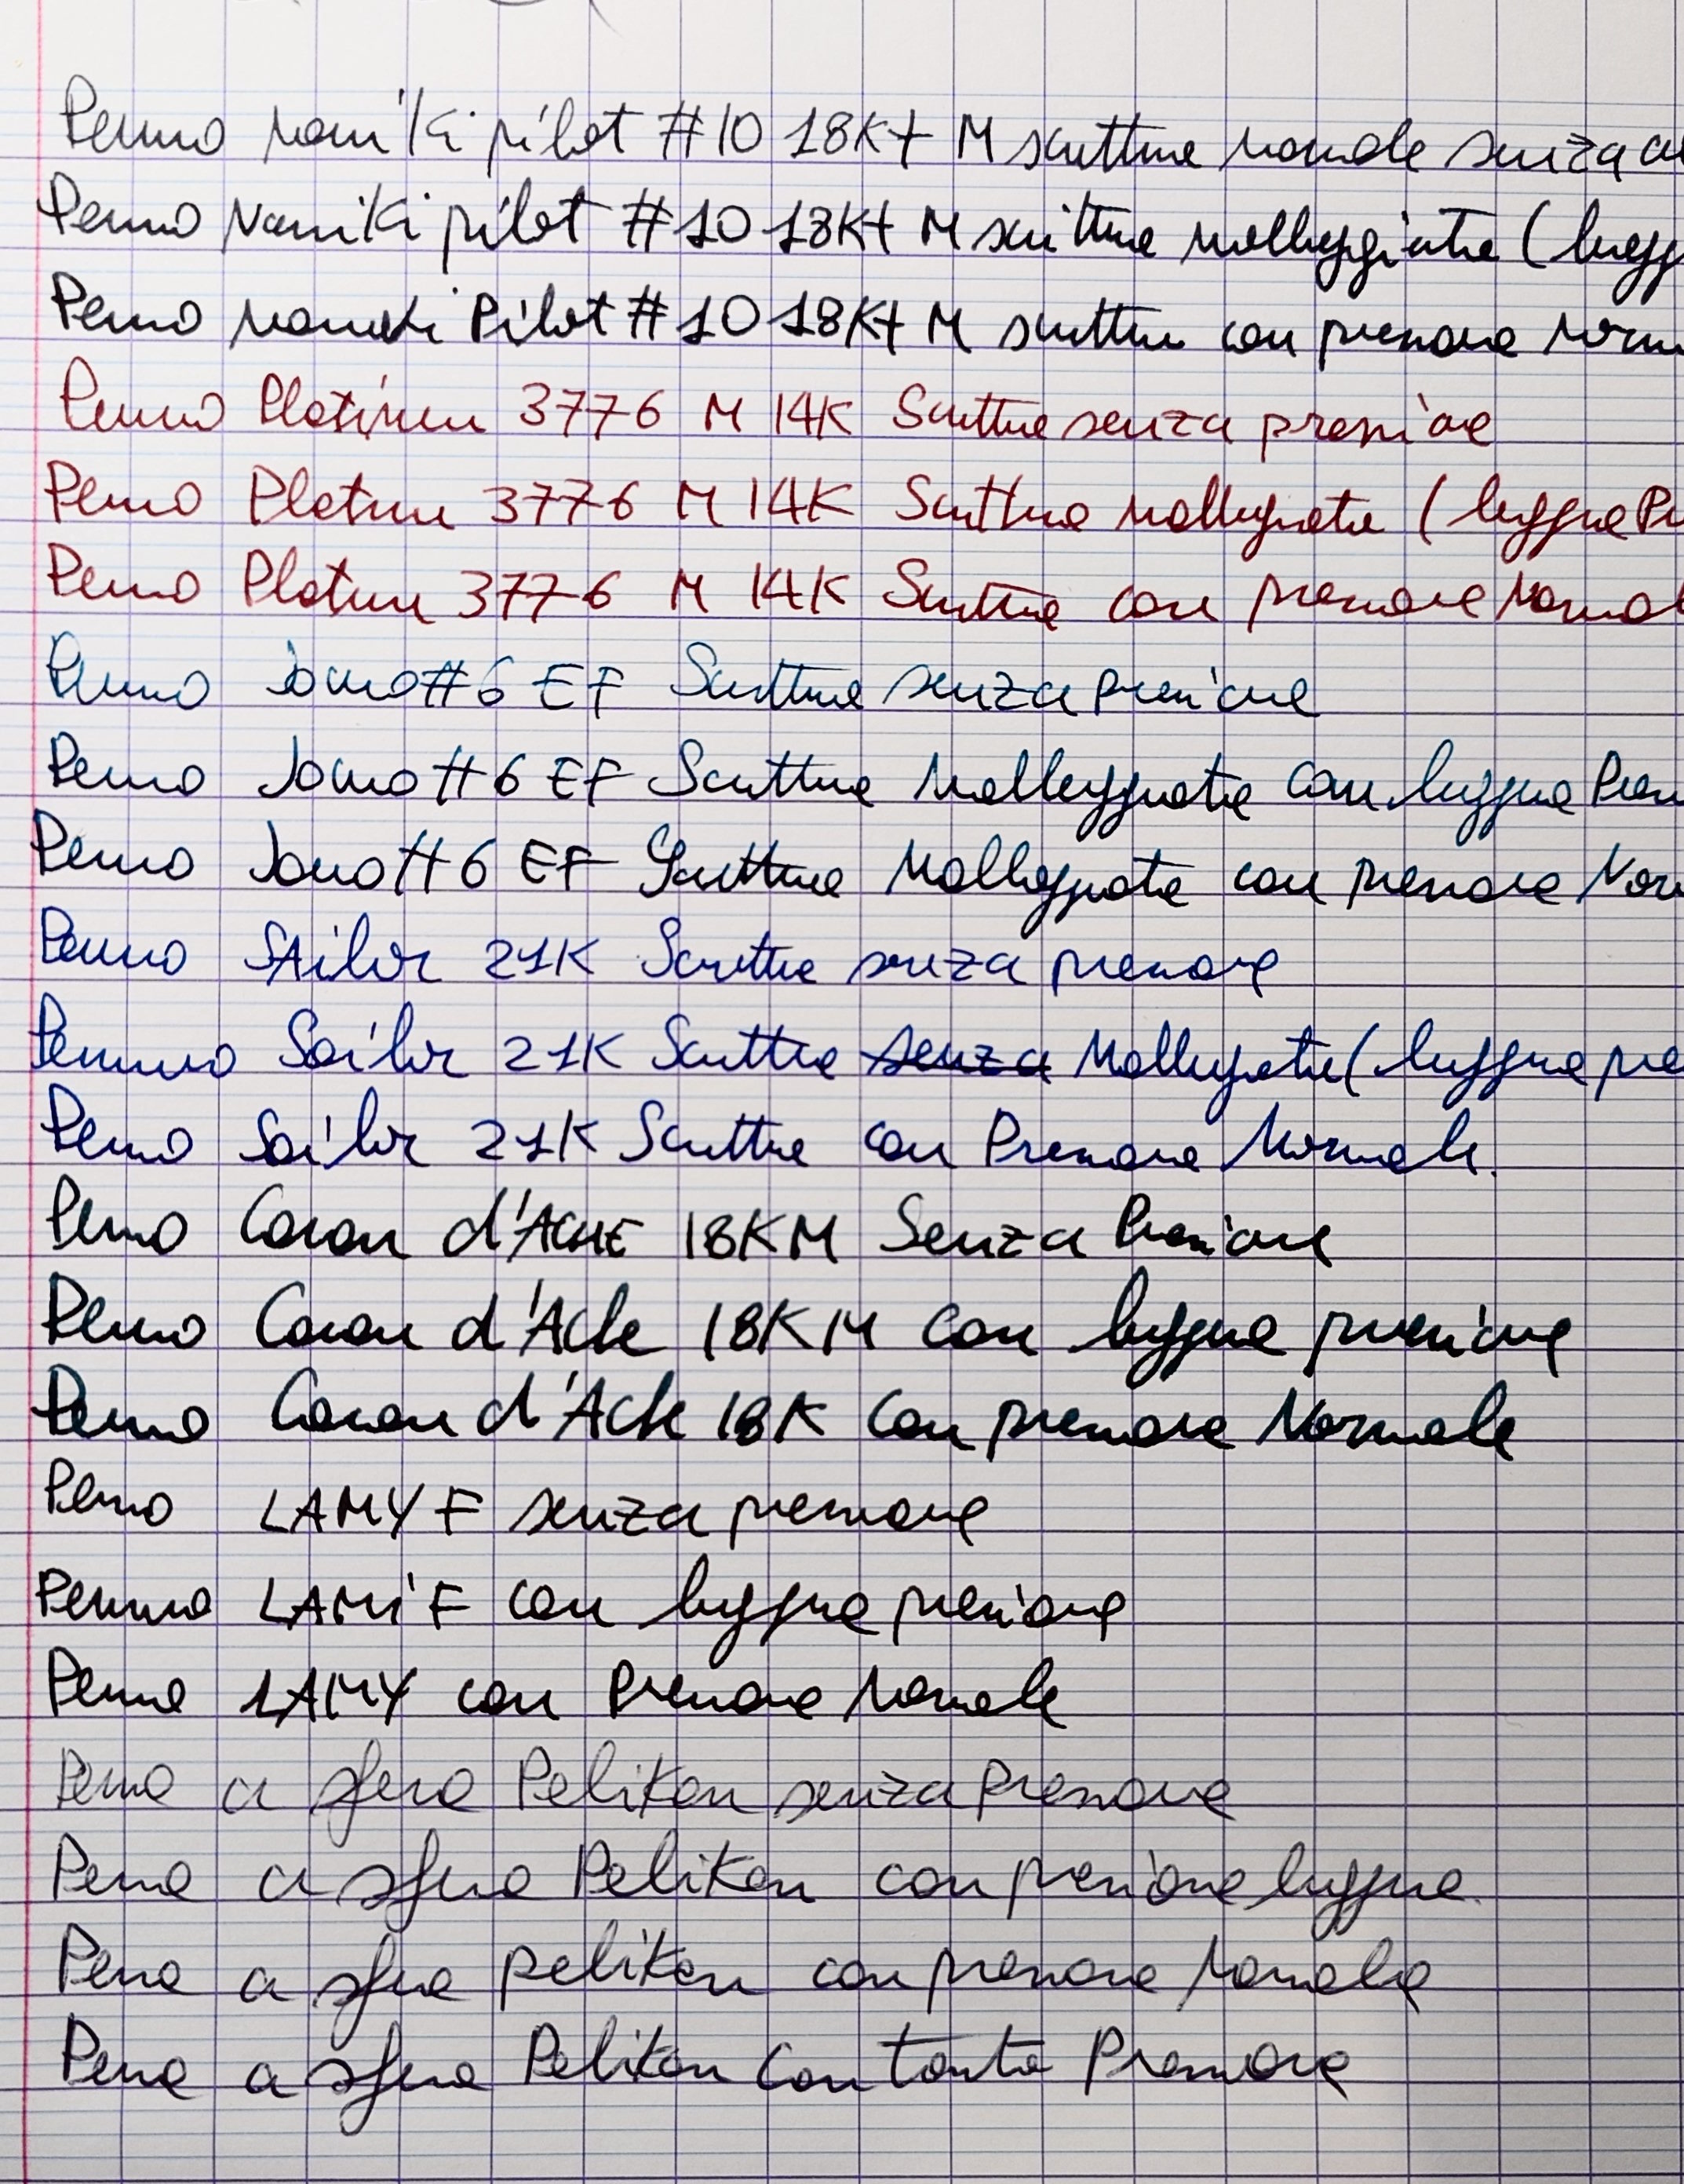 Penna Namiki pilot #10 18Kt M scrittura normale senza
Penna Namiki pilot #10 18Kt M scrittura molleggiata (legg
Penna Namiki Pilot #10 18Kt M scrittura con pressione norm
Penna Platinum 3776 M 14K Scrittura senza pressione
Penna Platinum 3776 M 14K Scrittura molleggiata (leggera Pr
Penna Platinum 3776 M 14K Scrittura con pressione Normal
Penna Jowo #6 EF Scrittura senza pressione
Penna Jowo #6 EF Scrittura Molleggiata con leggera Pres
Penna Jowo #6 EF Scrittura Molleggiata con pressione Nor
Penna SAilor 21K Scrittura senza pressione
Penna Sailor 21K Scrittura senza Molleggiata (leggera pre
Penna Sailor 21K Scrittura con Pressione Normale.
Penna Caran d'ACHE 18K M Senza Pressione
Penna Caran d'Ache 18K M con leggera pressione
Penna Caran d'Ache 18K Con pressione Normale
Penna LAMY F senza pressione
Penna LAMY F con leggera pressione
Penna LAMY con Pressione Normale
Penna a sfera Pelikan senza Pressione
Penna a sfera Pelikan con pressione leggera
Penna a sfera pelikan con pressione Normale
Penna a sfera Pelikan Con tanta Pressione